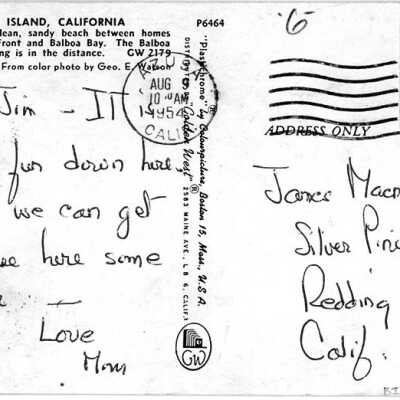 ISLAND, CALIFORNIA
lean, sandy beach between homes
Front and Balboa Bay. The Balboa
ng is in the distance. GW 2179
From color photo by Geo. E. Watson
Jim - IT is
fun down here,
we can get
ere here some
—
Love
Mom
P6464
"Plastichrome" by Colourpicture, Boston 15, Mass., U.S.A.
DIST. BY "Golden West" ® 2583 MAINE AVE., L.B. 6, CALIF.
GW
AZUSA
AUG 9
10 AM
1954
CALIF.
6
ADDRESS ONLY
James Macm
Silver Pine
Redding
Calif.